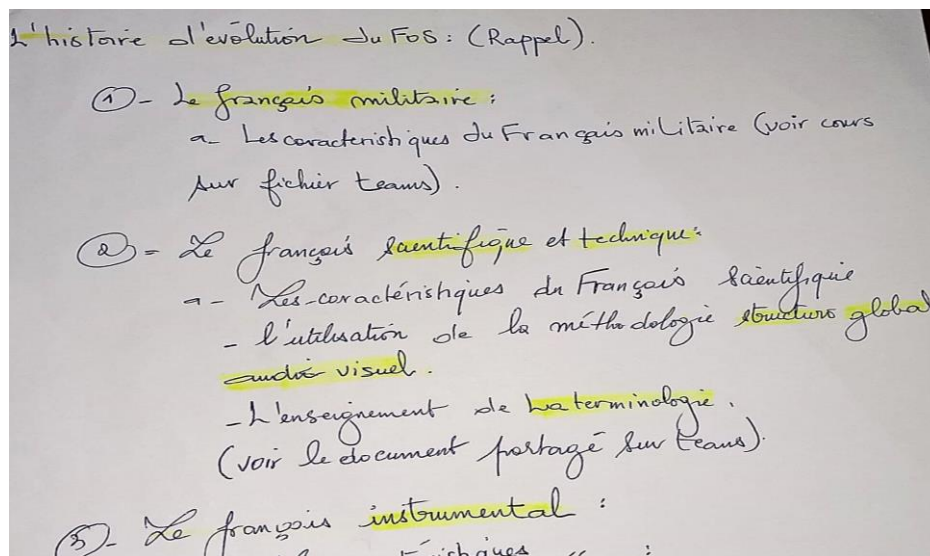 L'histoire d'évolution du FOS: (Rappel).
①- Le français militaire :
a- Les caractéristiques du Français militaire (voir cours
sur fichier teams).
②- Le français scientifique et technique:
a- Les caractéristiques du Français scientifique
- l'utilisation de la méthodologie structuro global
audio visuel.
- L'enseignement de La terminologie.
(voir le document partagé sur teams).
③- Le français instrumental :